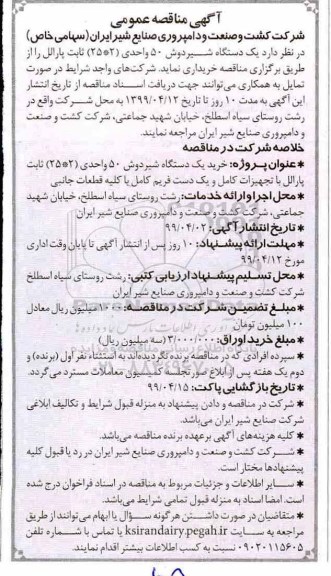 آگهی مناقصه عمومی
شرکت کشت و صنعت و دامپروری صنایع شیر ایران (سهامی خاص)
در نظر دارد یک دستگاه شیردوش ۵۰ واحدی (۲*۲۵) ثابت پارالل را از
طریق برگزاری مناقصه خریداری نماید. شرکت‌های واجد شرایط در صورت
تمایل به همکاری می‌توانند جهت دریافت اسناد مناقصه از تاریخ انتشار
این آگهی به مدت ۱۰ روز تا تاریخ ۱۳۹۹/۰۴/۱۲ به محل شرکت واقع در
رشت روستای سیاه اسطلخ، خیابان شهید جماعتی، شرکت کشت و صنعت
و دامپروری صنایع شیر ایران مراجعه نمایند.
خلاصه شرکت در مناقصه
* عنوان پروژه: خرید یک دستگاه شیردوش ۵۰ واحدی (۲*۲۵) ثابت
پارالل با تجهیزات کامل و یک دست فریم کامل با کلیه قطعات جانبی
* محل اجرا و ارائه خدمات: رشت روستای سیاه اسطلخ، خیابان شهید
جماعتی، شرکت کشت و صنعت و دامپروری صنایع شیر ایران
* تاریخ انتشار آگهی: ۹۹/۰۴/۰۲
* مهلت ارائه پیشنهاد: ۱۰ روز پس از انتشار آگهی تا پایان وقت اداری
مورخ ۹۹/۰۴/۱۲
* محل تسلیم پیشنهاد ارزیابی کتبی: رشت روستای سیاه اسطلخ
شرکت کشت و صنعت و دامپروری صنایع شیر ایران
* مبلغ تضمین شرکت در مناقصه: ۱۰۰۰ میلیون ریال معادل
۱۰۰ میلیون تومان
* مبلغ خرید اوراق: ۳/۰۰۰/۰۰۰ (سه میلیون ریال)
* سپرده افرادی که در مناقصه برنده نگردیده‌اند به استثناء نفر اول (برنده) و
دوم یک هفته پس از ابلاغ نظر تجلسه کمیسیون معاملات مسترد می‌گردد.
* تاریخ بازگشایی پاکت: ۹۹/۰۴/۱۵
* شرکت در مناقصه و دادن پیشنهاد به منزله قبول شرایط و تکالیف ابلاغی
شرکت صنایع شیر ایران می‌باشد.
* کلیه هزینه‌های آگهی بر عهده برنده مناقصه می‌باشد.
* شرکت کشت و صنعت و دامپروری صنایع شیر ایران در رد یا قبول کلیه
پیشنهادها مختار است.
* سایر اطلاعات و جزئیات مربوط به مناقصه در اسناد فراخوان درج شده
است. امضا اسناد به منزله قبول تمامی شرایط می‌باشد.
* متقاضیان در صورت داشتن هرگونه سؤال یا ابهام می‌توانند از طریق
مراجعه به سایت ksirandairy.pegah.ir یا تماس با شماره تلفن
۰۹۰۲۰۱۱۵۶۰۵ نسبت به کسب اطلاعات بیشتر اقدام نمایند.